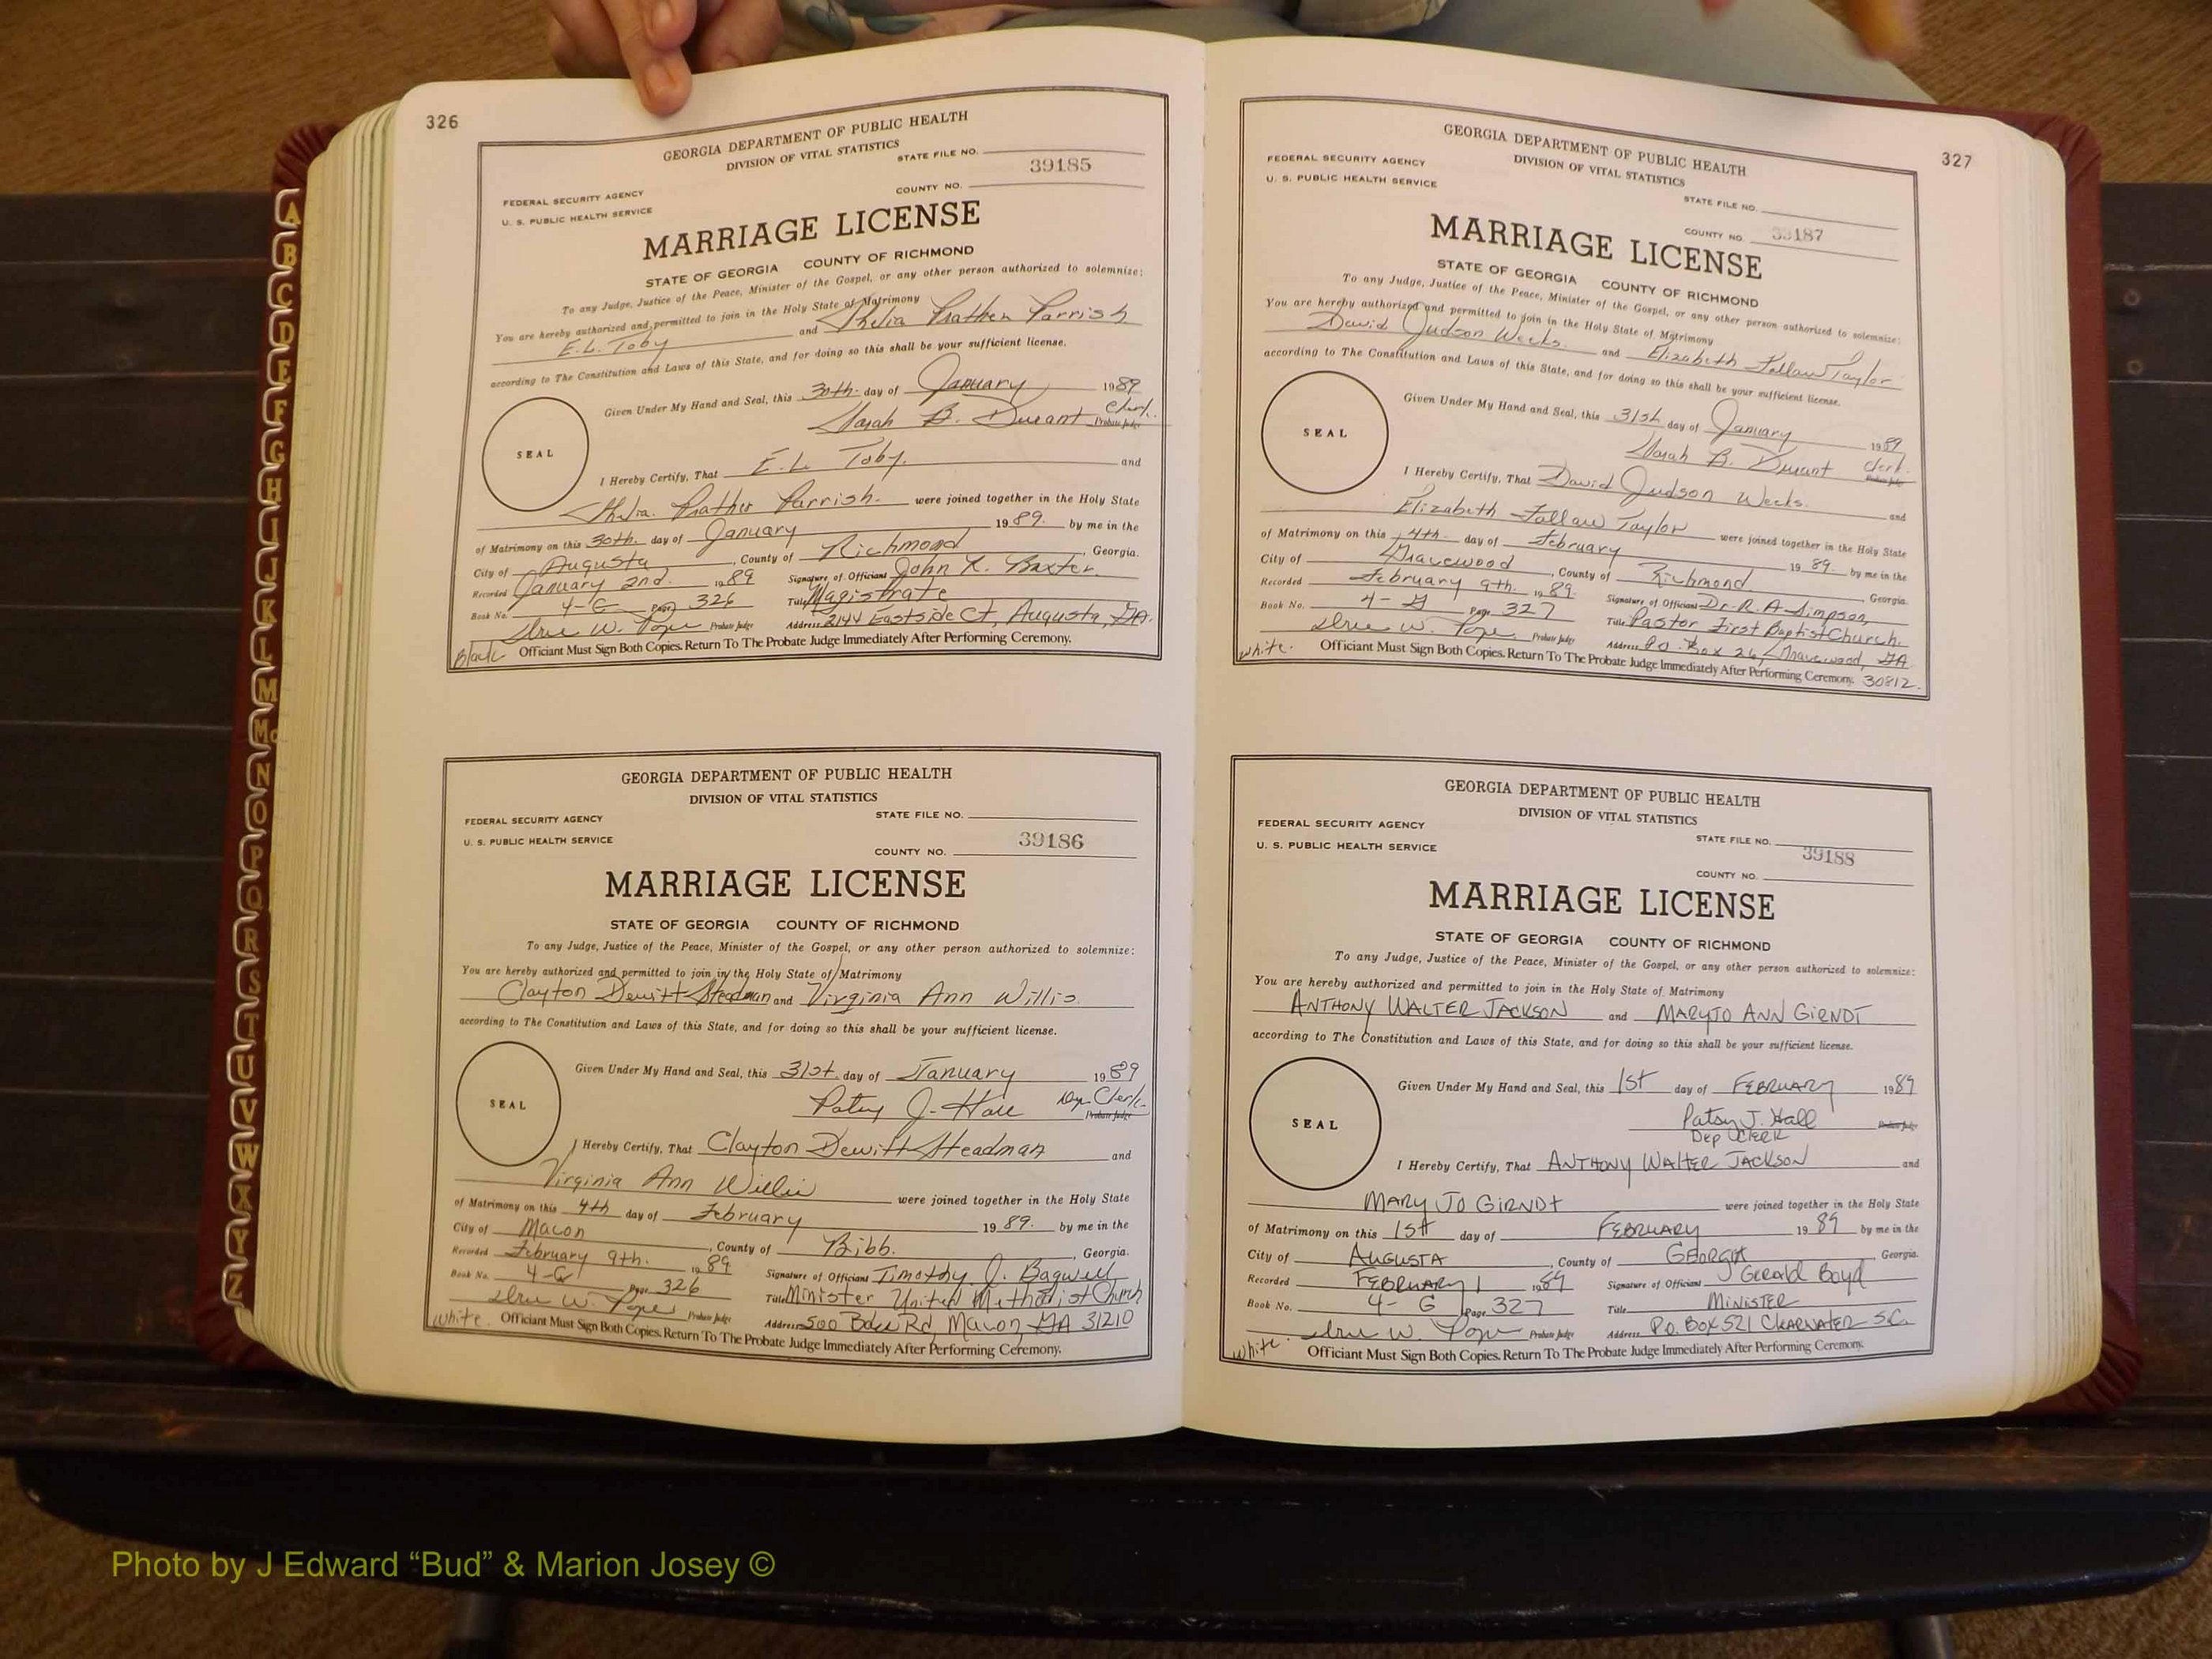 326
GEORGIA DEPARTMENT OF PUBLIC HEALTH
DIVISION OF VITAL STATISTICS
STATE FILE NO.
39185
FEDERAL SECURITY AGENCY
COUNTY NO.
U. S. PUBLIC HEALTH SERVICE
MARRIAGE LICENSE
STATE OF GEORGIA COUNTY OF RICHMOND
To any Judge, Justice of the Peace, Minister of the Gospel, or any other person authorized to solemnize:
You are hereby authorized and permitted to join in the Holy State of Matrimony
E.L. Toby and Thelia Prather Parrish
according to The Constitution and Laws of this State, and for doing so this shall be your sufficient license.
Given Under My Hand and Seal, this 30th day of January 1989
Sarah B. Durant Clerk.
Probate Judge
SEAL
I Hereby Certify, That E.L. Toby. and
Thelia Prather Parrish. were joined together in the Holy State
of Matrimony on this 30th. day of January 1989. by me in the
City of Augusta, County of Richmond, Georgia.
Recorded January 2nd. 1989 Signature of Official John K. Baxter.
Book No. 4-G Page 326 Title Magistrate
W. Pope Probate Judge Address 2144 Eastside Ct, Augusta, GA.
Black Officiant Must Sign Both Copies. Return To The Probate Judge Immediately After Performing Ceremony.
GEORGIA DEPARTMENT OF PUBLIC HEALTH
DIVISION OF VITAL STATISTICS
FEDERAL SECURITY AGENCY STATE FILE NO.
U. S. PUBLIC HEALTH SERVICE 39186
COUNTY NO.
MARRIAGE LICENSE
STATE OF GEORGIA COUNTY OF RICHMOND
To any Judge, Justice of the Peace, Minister of the Gospel, or any other person authorized to solemnize:
You are hereby authorized and permitted to join in the Holy State of Matrimony
Clayton Dewitt Steadman and Virginia Ann Willis.
according to The Constitution and Laws of this State, and for doing so this shall be your sufficient license.
Given Under My Hand and Seal, this 31st. day of January 1989
Patsy J. Hall Dep. Clerk.
Probate Judge
SEAL
I Hereby Certify, That Clayton Dewitt Steadman and
Virginia Ann Willis were joined together in the Holy State
of Matrimony on this 4th day of February 1989. by me in the
City of Macon, County of Bibb., Georgia.
Recorded February 9th. 1989 Signature of Official Timothy J. Bagwell
Book No. 4-G Page 326 Title Minister United Methodist Church
W. Pope Probate Judge Address 500 Rd, Macon, GA 31210
White. Officiant Must Sign Both Copies. Return To The Probate Judge Immediately After Performing Ceremony.
327
GEORGIA DEPARTMENT OF PUBLIC HEALTH
DIVISION OF VITAL STATISTICS
FEDERAL SECURITY AGENCY
U. S. PUBLIC HEALTH SERVICE
STATE FILE NO.
COUNTY NO. 39187
MARRIAGE LICENSE
STATE OF GEORGIA COUNTY OF RICHMOND
To any Judge, Justice of the Peace, Minister of the Gospel, or any other person authorized to solemnize:
You are hereby authorized and permitted to join in the Holy State of Matrimony
David Judson Weeks. and Elizabeth Fallaw Taylor
according to The Constitution and Laws of this State, and for doing so this shall be your sufficient license.
Given Under My Hand and Seal, this 31st day of January 1989
Sarah B. Durant Clerk.
Probate Judge
SEAL
I Hereby Certify, That David Judson Weeks. and
Elizabeth Fallaw Taylor were joined together in the Holy State
of Matrimony on this 4th. day of February 1989. by me in the
City of Gracewood, County of Richmond, Georgia.
Recorded February 9th. 1989. Signature of Official Dr. R. A. Simpson
Book No. 4-G Page 327 Title Pastor First Baptist Church.
W. Pope Probate Judge Address P.O. Box 26, Gracewood, GA
White. Officiant Must Sign Both Copies. Return To The Probate Judge Immediately After Performing Ceremony. 30812.
GEORGIA DEPARTMENT OF PUBLIC HEALTH
DIVISION OF VITAL STATISTICS
FEDERAL SECURITY AGENCY
STATE FILE NO.
U. S. PUBLIC HEALTH SERVICE
39188
COUNTY NO.
MARRIAGE LICENSE
STATE OF GEORGIA COUNTY OF RICHMOND
To any Judge, Justice of the Peace, Minister of the Gospel, or any other person authorized to solemnize:
You are hereby authorized and permitted to join in the Holy State of Matrimony
ANTHONY WALTER JACKSON and MARYJO ANN GIRNDT
according to The Constitution and Laws of this State, and for doing so this shall be your sufficient license.
Given Under My Hand and Seal, this 1st day of FEBRUARY 1989
Patsy J. Hall Probate Judge
Dep CLERK
SEAL
I Hereby Certify, That ANTHONY WALTER JACKSON and
MARY JO GIRNDT were joined together in the Holy State
of Matrimony on this 1st day of FEBRUARY 1989 by me in the
City of AUGUSTA, County of GEORGIA, Georgia.
Recorded FEBRUARY 1 1989 Signature of Official J Gerald Boyd
Book No. 4-G Page 327 Title MINISTER
W. Pope Probate Judge Address P.O. BOX 521 CLEARWATER S.C.
White. Officiant Must Sign Both Copies. Return To The Probate Judge Immediately After Performing Ceremony.
A
B
C
D
E
F
G
H
I
J
K
L
M
Mc
N
O
P
Q
R
S
T
U
V
W
X
Y
Z
Photo by J Edward “Bud” & Marion Josey ©